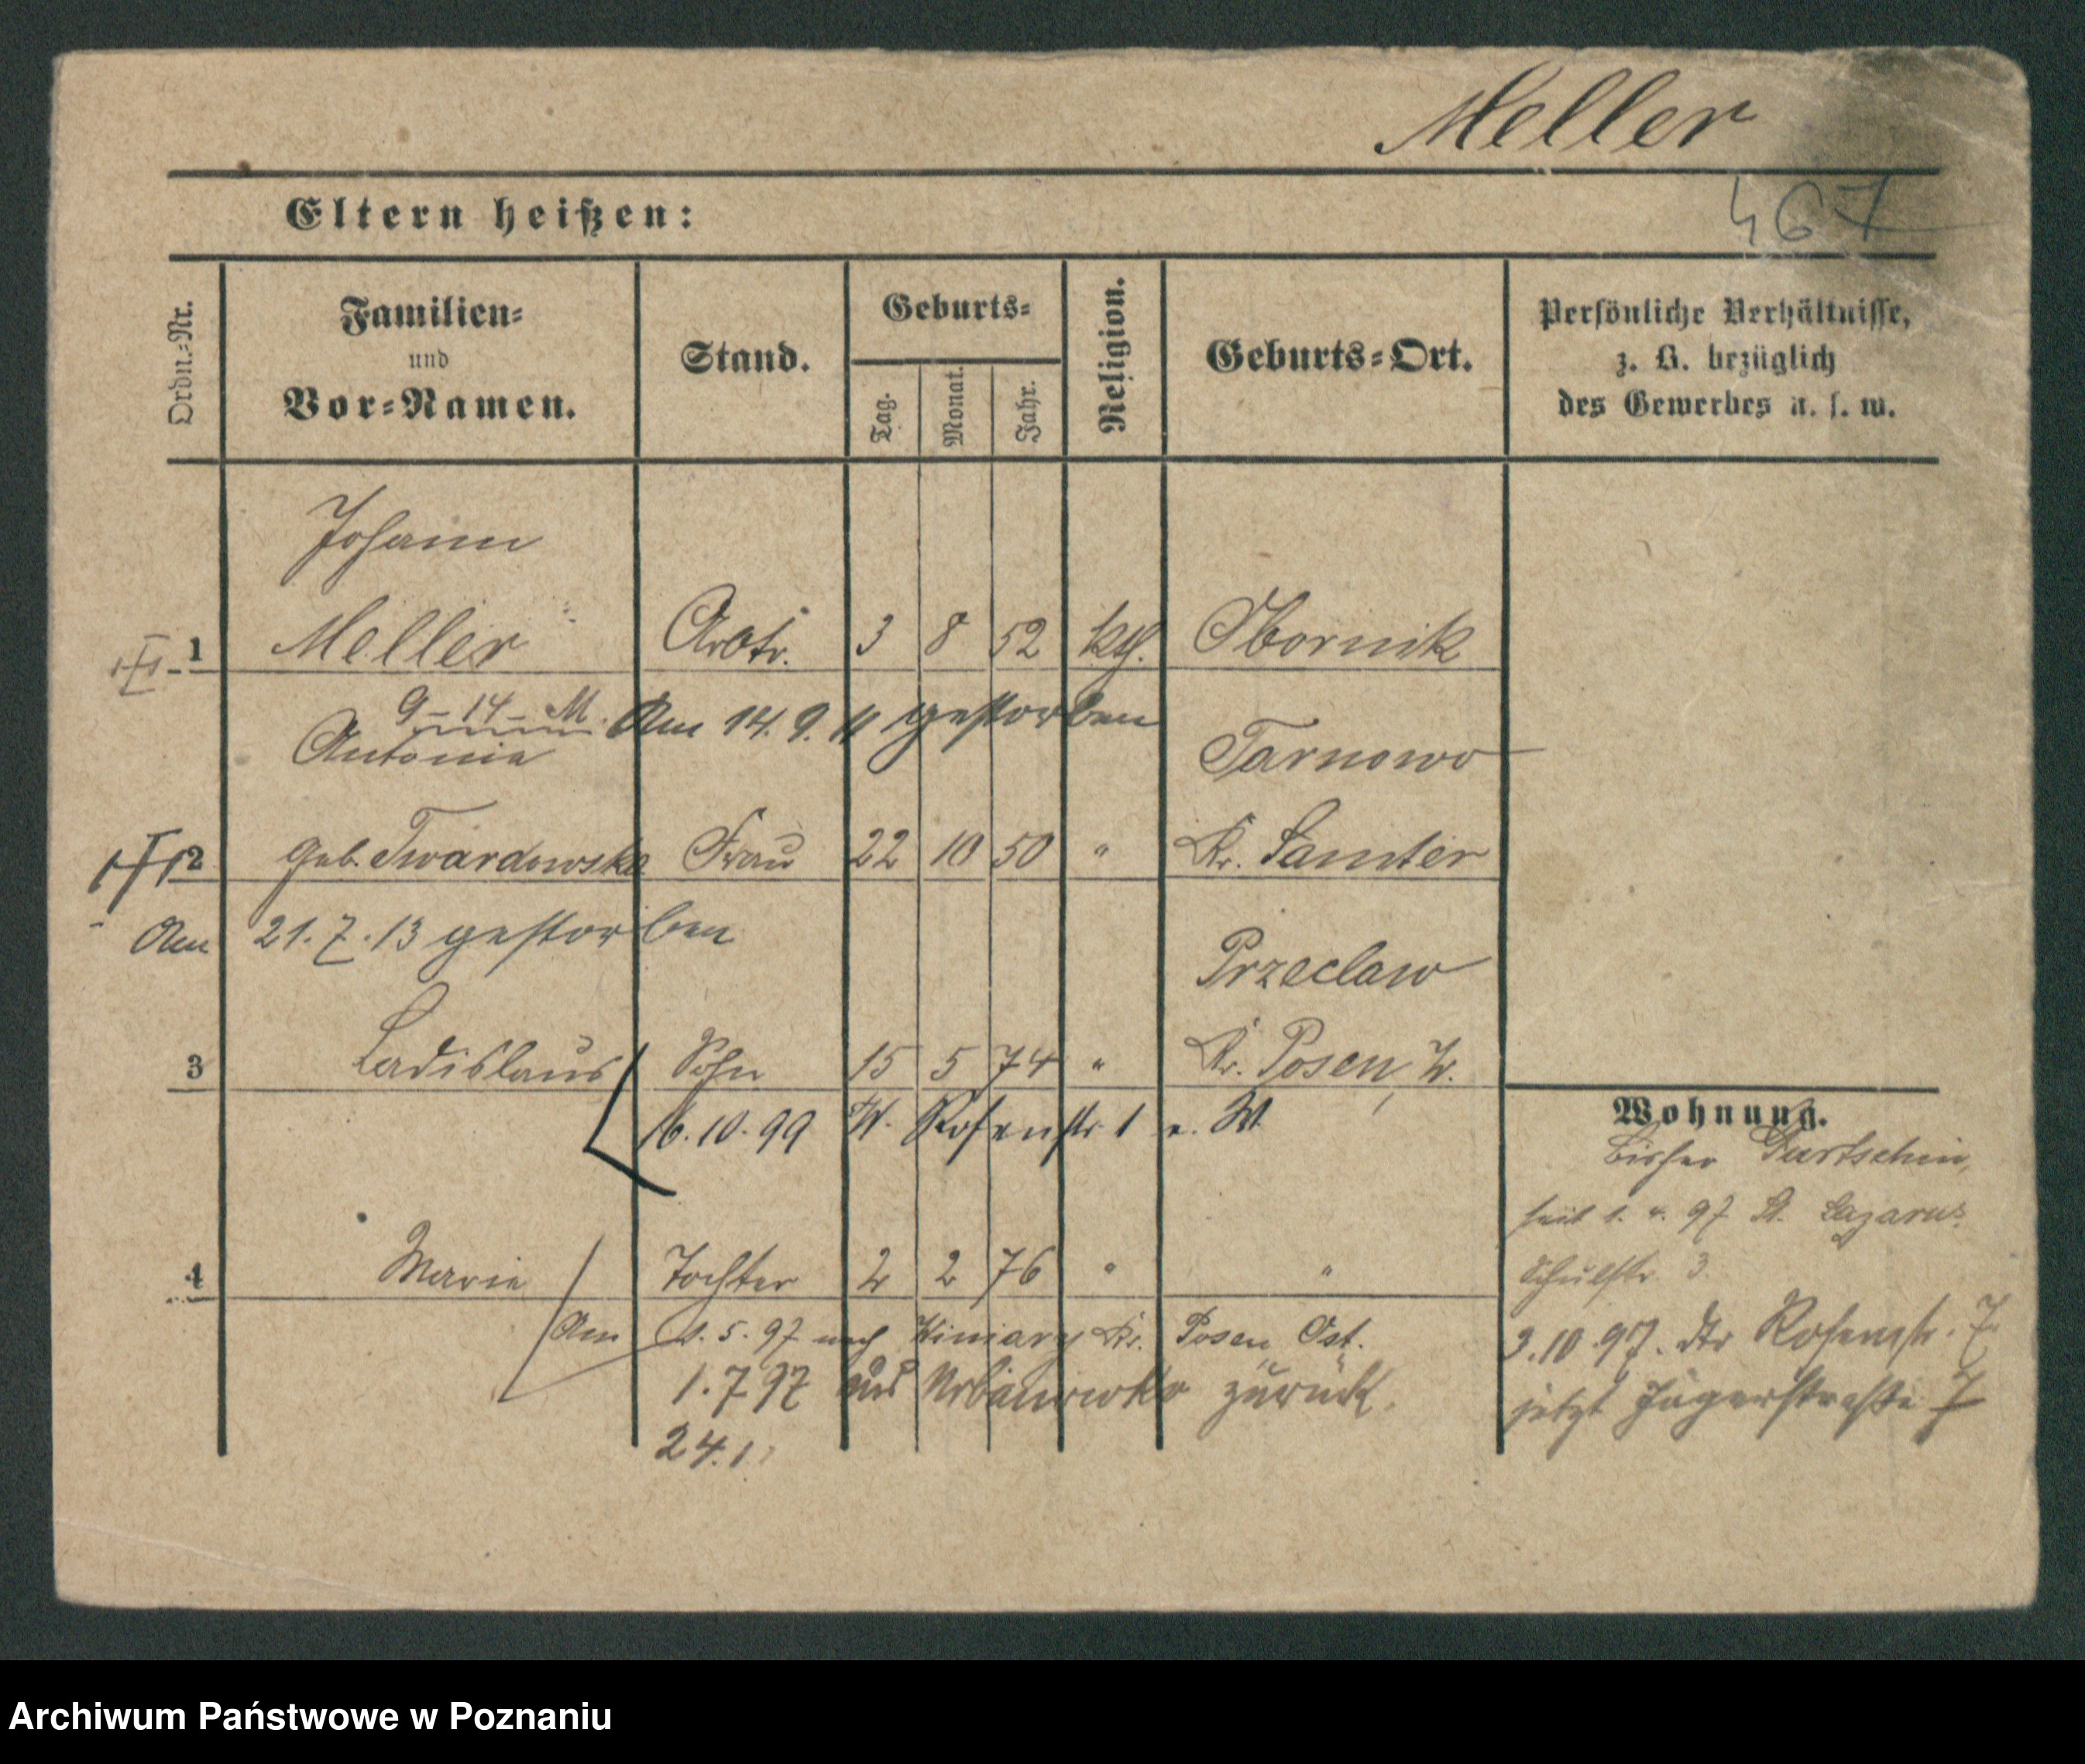 Meller
467
Eltern heißen:
Ordn.-Nr.
Familien-
und
Vor-Namen.
Stand.
Geburts-
Tag.
Monat.
Jahr.
Religion.
Geburts-Ort.
Persönliche Verhältnisse,
z. B. bezüglich
des Gewerbes u. s. w.
Johann
1 Meller Arbtr. 3 8 52 kth. Obornik
9-14-M. Am 14. 9. 11 gestorben
Antonia Tarnowo
2 geb. Twardowska Frau 22 10 50 " Kr. Samter
Am 21. 7. 13 gestorben
Przeclaw
3 Ladislaus Sohn 15 5 74 " Kr. Posen, W.
16. 10. 99 Rosenstr. 1
Wohnung.
bisher Gurtschin,
seit 1. 4. 97 St. Lazarus
Schulstr 3
4 Marie Tochter 2 2 76 " "
Am 1. 5. 97 nach Winiary Kr. Posen Ost.
3. 10. 97. Rosenstr. 7
1. 7 97 aus zurück.
jetzt Jägerstraße 7
24. 1.
Archiwum Państwowe w Poznaniu